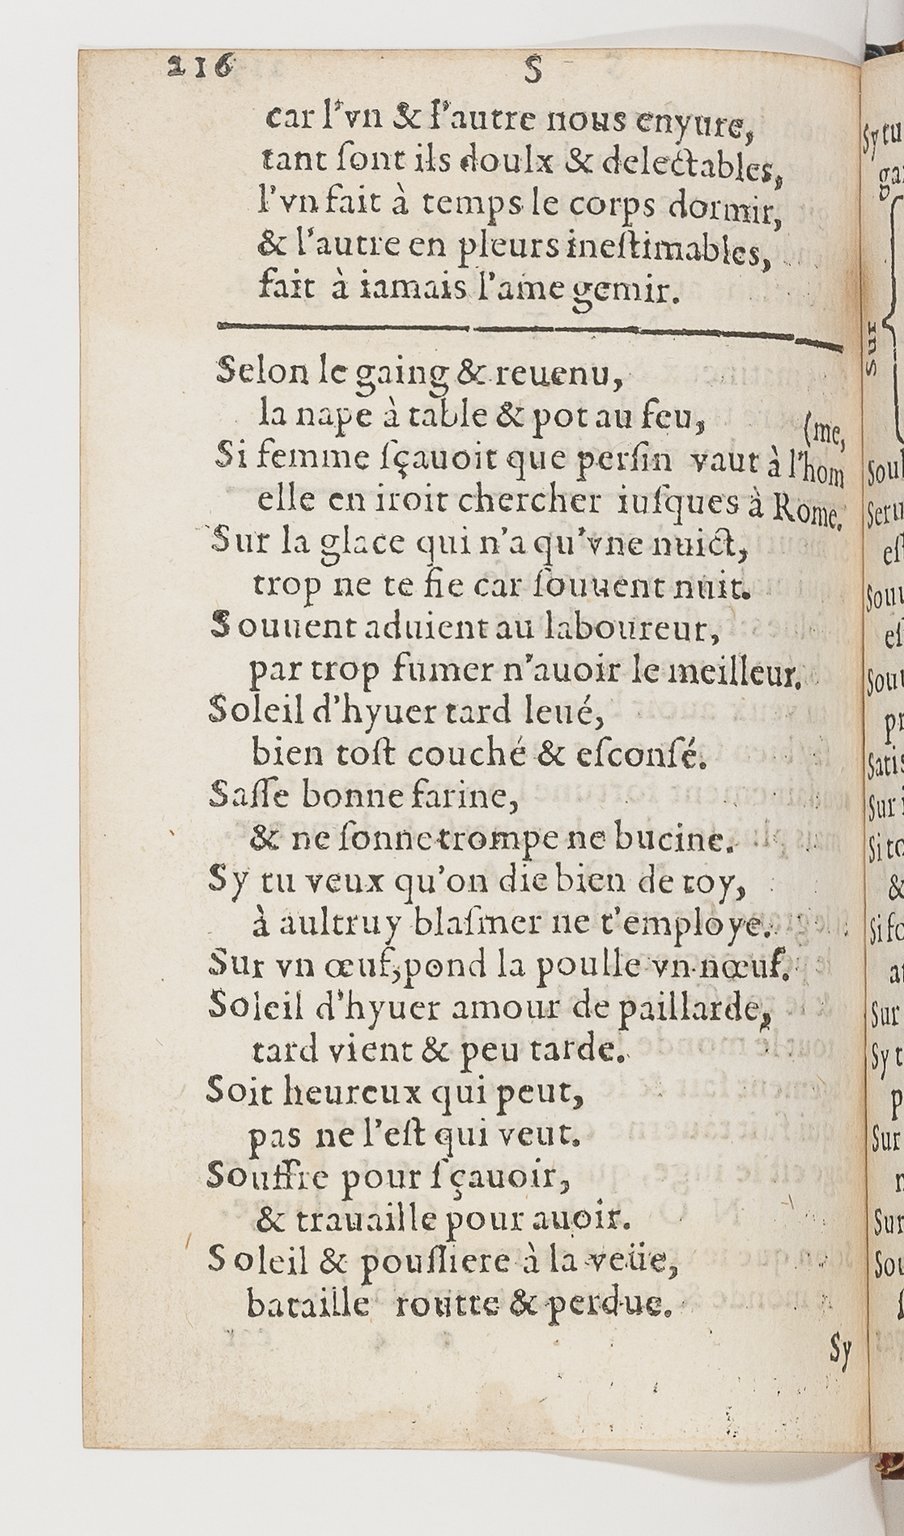 216 S
car l'vn & l'autre nous enyure,
tant ſont ils doulx & delectables,
l'vn fait à temps le corps dormir,
& l'autre en pleurs ineſtimables,
fait à iamais l'ame gemir.
Selon le gaing & reuenu,
la nape à table & pot au feu,
(me,
Si femme ſçauoit que perſin vaut à l'hom
elle en iroit chercher iuſques à Rome.
Sur la glace qui n'a qu'vne nuict,
trop ne te fie car ſouuent nuit.
Souuent aduient au laboureur,
par trop fumer n'auoir le meilleur.
Soleil d'hyuer tard leué,
bien toſt couché & eſconſé.
Saſſe bonne farine,
& ne ſonne trompe ne bucine.
Sy tu veux qu'on die bien de toy,
à aultruy blaſmer ne t'employe.
Sur vn œuf, pond la poulle vn nœuf.
Soleil d'hyuer amour de paillarde,
tard vient & peu tarde.
Soit heureux qui peut,
pas ne l'eſt qui veut.
Souffre pour ſçauoir,
& trauaille pour auoir.
Soleil & pouſſiere à la veüe,
bataille routte & perdue.
Sy